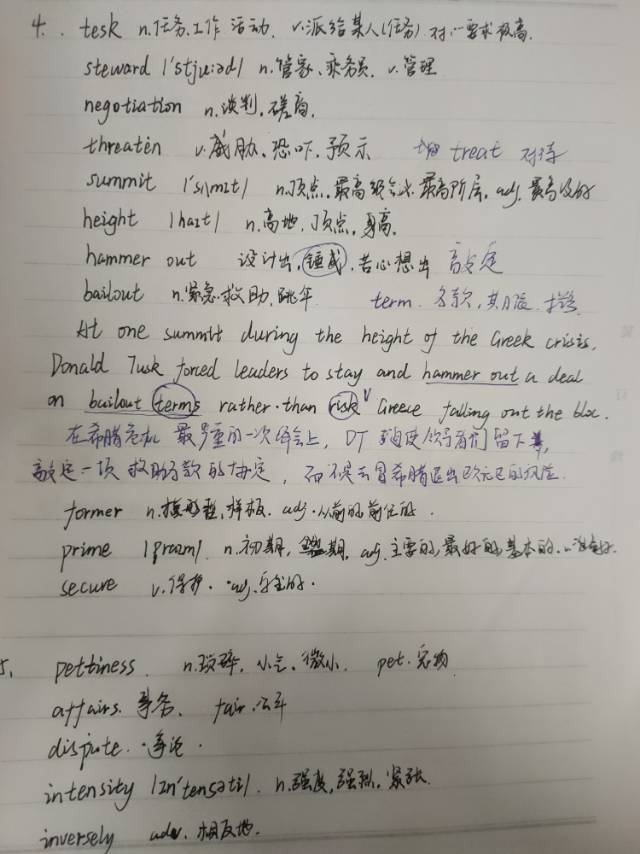 4. tesk n.任务.工作 活动. v.派给某人(任务) 对…要求极高.
steward |'stju:əd| n.管家、乘务员. v.管理
negotiation n.谈判.磋商.
threaten v.威胁、恐吓.预示 treat 对待
summit |'sʌmɪt| n.顶点.最高级会议.最高阶层. adj. 最高级的
height |haɪt| n.高地.顶点.身高.
hammer out 设计出.锤成.苦心想出 敲定
bailout n.紧急救助.跳伞 term. 条款.期限.
At one summit during the height of the Greek crisis,
Donald Tusk forced leaders to stay and hammer out a deal
on bailout terms rather than risk Greece falling out the bloc.
在希腊危机 最严重的一次峰会上, DT 迫使领导者们留下来,
敲定一项 救助条款的协定, 而不是去冒希腊退出欧元区的风险.
former n.模型,样板. adj.从前的前任的.
prime |praɪm|. n.初期, 盛期. adj.主要的,最好的,基本的. v.准备好
secure v.保护. adj.安全的.
5. pettiness. n.琐碎, 小气.微小. pet.宠物
affairs. 事务. fair.公平
dispute. 争论.
intensity |ɪn'tensəti|. n.强度,强烈.紧张.
inversely adv. 相反地.